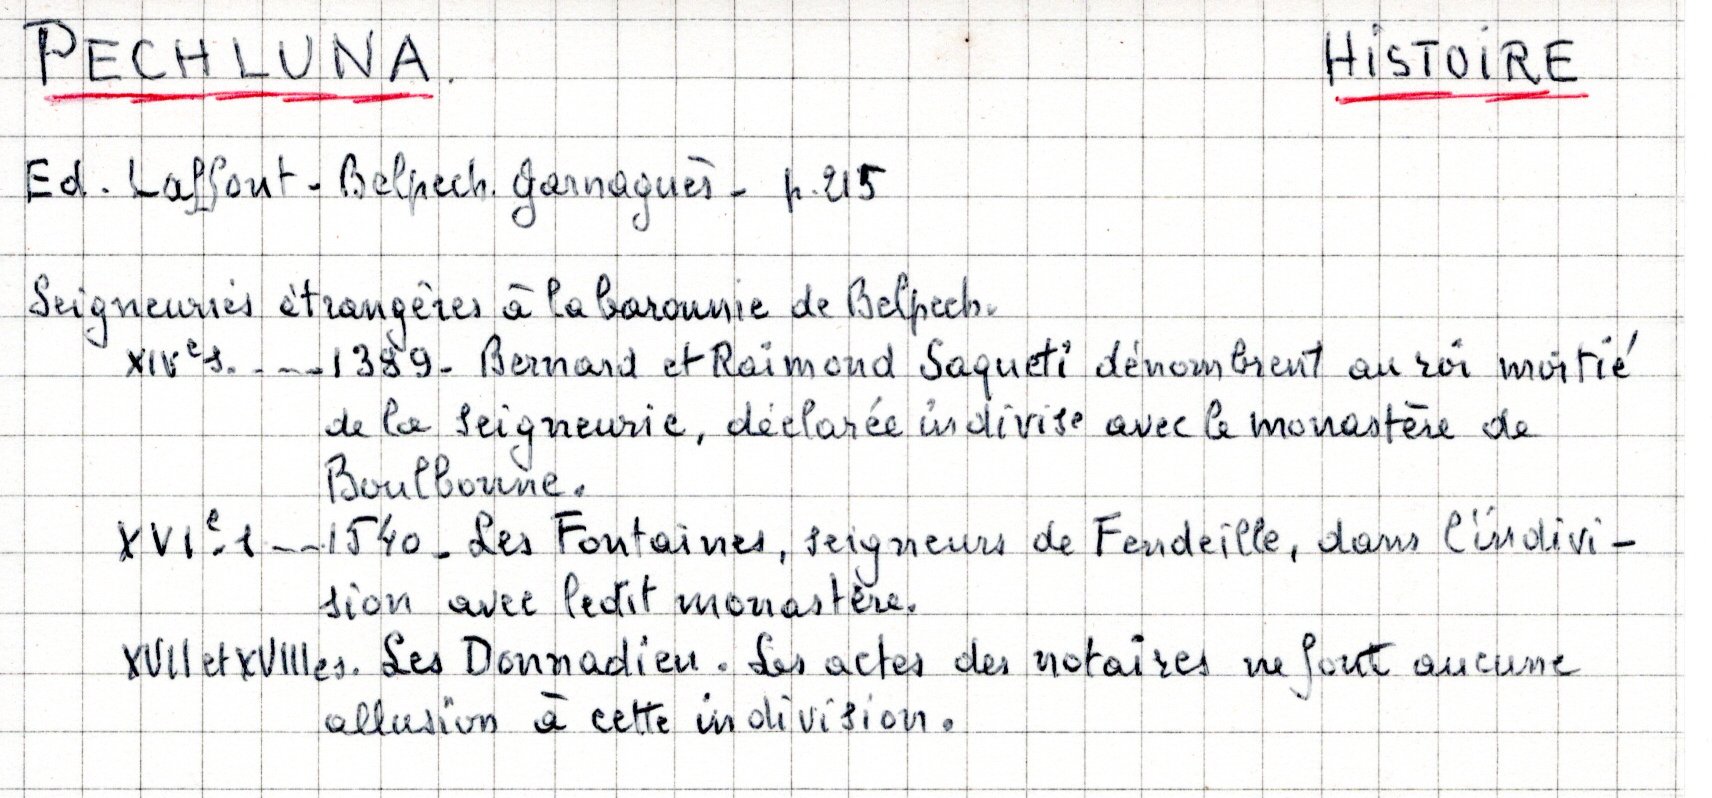 PECHLUNA. HISTOIRE
Ed. Laffont - Belpech. Garnaguès - p. 215
Seigneuries étrangères à la baronnie de Belpech.
XIVe s. ---- 1389 - Bernard et Raimond Saqueti dénombrent au roi moitié
de la seigneurie, déclarée indivise avec le monastère de
Boulbonne.
XVIe s --- 1540 - Les Fontaines, seigneurs de Fendeille, dans l'indivi-
sion avec ledit monastère.
XVII et XVIIIes. Les Donnadieu. Les actes des notaires ne font aucune
allusion à cette indivision.